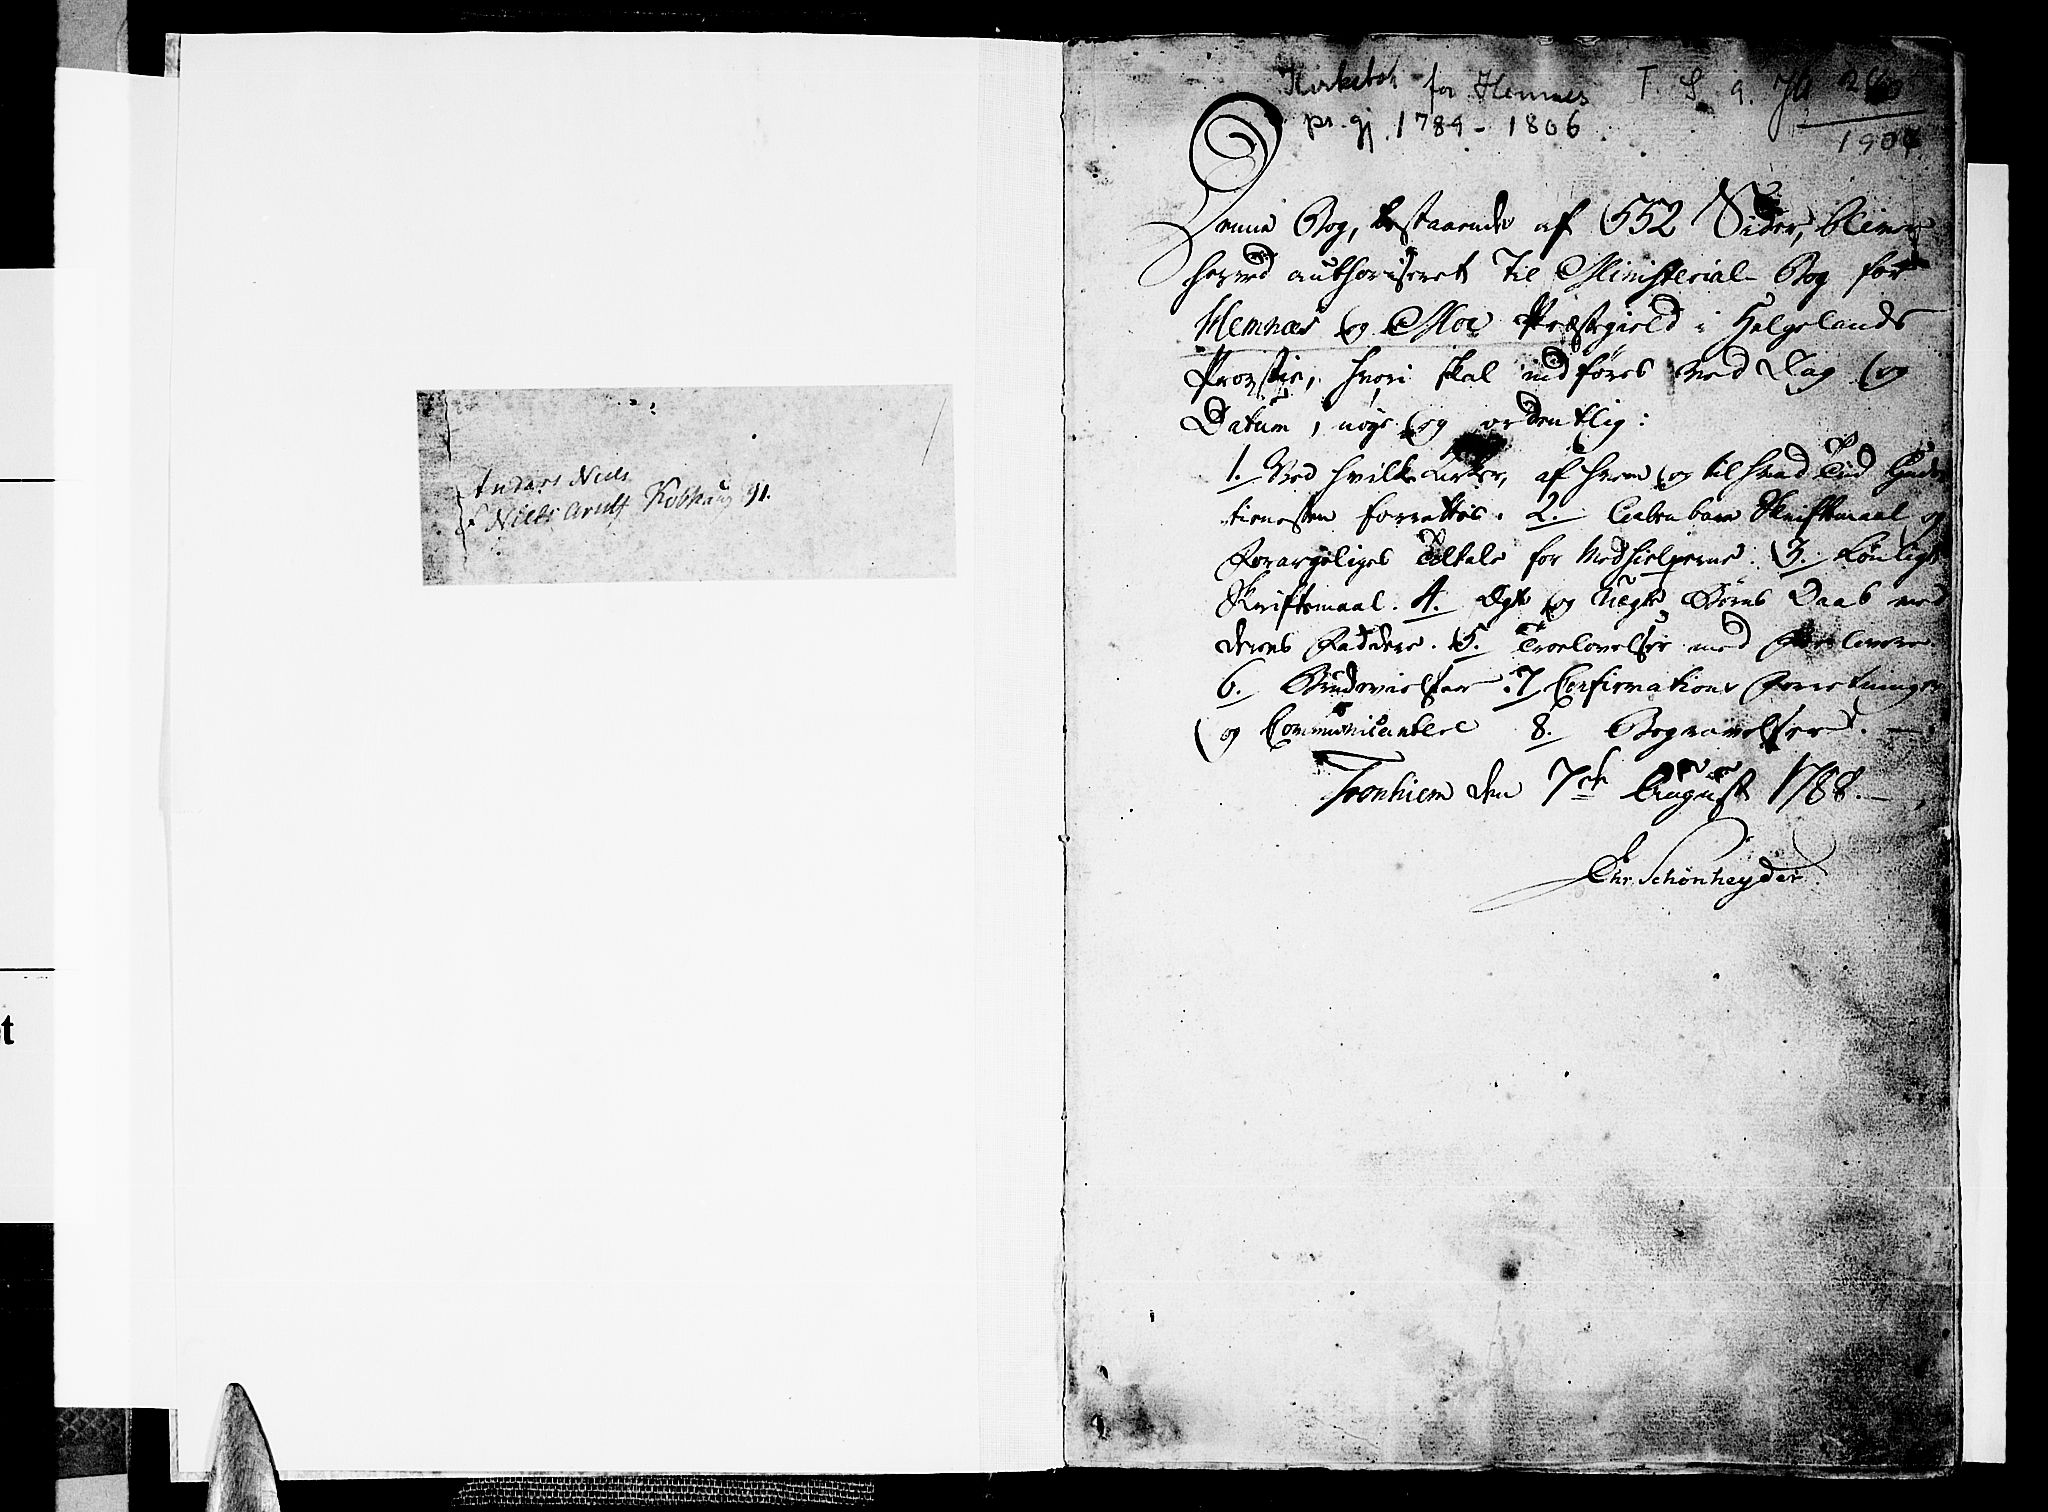 Anders Niels
Niels Arntf Kobhaug 91.
Kirkebok for Hemnes T. S. a. Jk
pr. gj. 1789 - 1806.
Denne Bog, bestaaende af 552 Sider, bliver
herved authoriseret til Ministerial-Bog for
Hemnæs og Moe Præstegield i Helgelands
Provstie, hvori skal indføres ved Dag og
Datum, nøye og ordentlig:
1. Ved hvilke Kirker, af hvem og til hvad Tiid Guds-
tienesten forrettes. 2. Aabenbare Skriftemaal og
Forargeliges Tiltale for Medhielperne. 3. Lønlige
Skriftemaal. 4. Ægte og Uægte Børns Daab med
deres Faddere. 5. Troelovelser med Forlovere.
6. Brudevielser. 7. Confirmations Forretninger
og Communicantere 8. Begravelser. —
Tronhiem den 7de August 1788. —
Chr. Schönheyder.
t